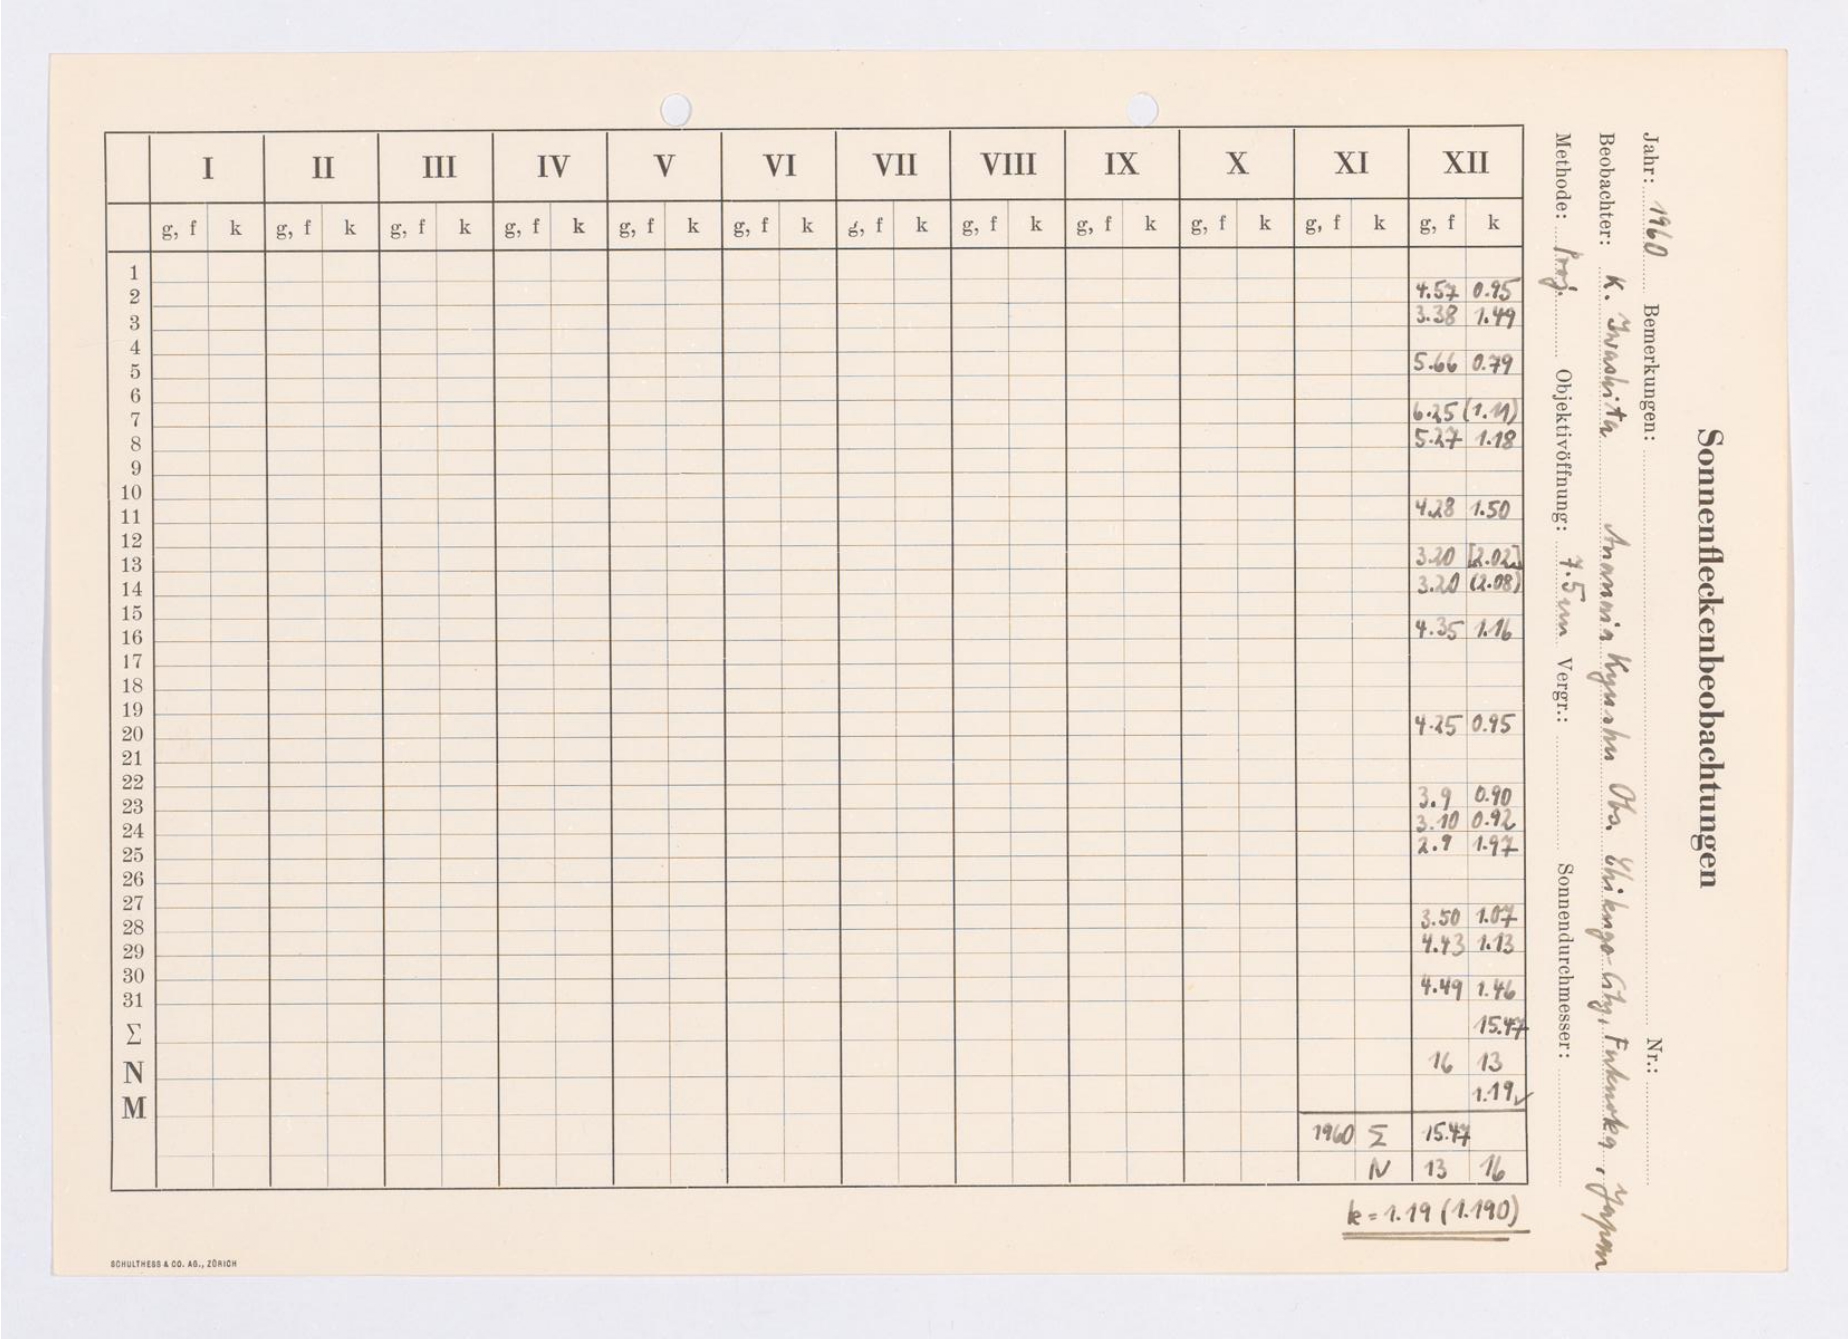 Sonnenfleckenbeobachtungen
Jahr: 1960 Bemerkungen: Nr.:
Beobachter: K. Iwashita Amanmin Kyushu Obs. Chikugo-City, Fukuoka, Japan
Methode: Proj. Objektivöffnung: 7.5 cm Vergr.: Sonnendurchmesser:
I II III IV V VI VII VIII IX X XI XII
g, f k g, f k g, f k g, f k g, f k g, f k g, f k g, f k g, f k g, f k g, f k g, f k
1
2 4.57 0.95
3 3.38 1.49
4
5 5.66 0.79
6
7 6.25 (1.11)
8 5.27 1.18
9
10
11 4.28 1.50
12
13 3.20 [2.02]
14 3.20 (2.08)
15
16 4.35 1.16
17
18
19
20 4.25 0.95
21
22
23 3.9 0.90
24 3.10 0.92
25 2.9 1.97
26
27
28 3.50 1.07
29 4.43 1.13
30
31 4.49 1.46
Σ 15.47
N 16 13
M 1.19 ✓
1960 Σ 15.47
N 13 16
k = 1.19 (1.190)
SCHULTHESS & CO. AG., ZÜRICH